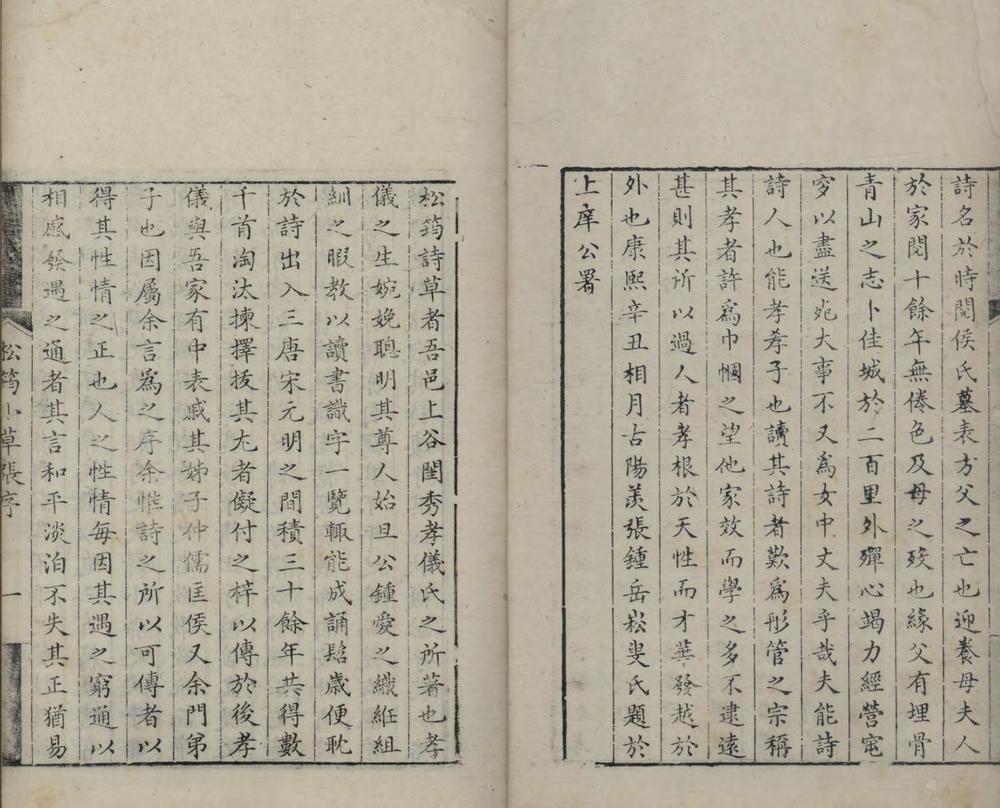 詩名於時閱侯氏墓表方父之亡也迎養母夫人
於家閱十餘年無倦色及母之歿也緣父有埋骨
青山之志卜佳城於二百里外殫心竭力經營窀
穸以盡送死大事不又為女中丈夫乎哉夫能詩
詩人也能孝孝子也讀其詩者歎為彤管之宗稱
其孝者許為巾幗之望他家效而學之多不逮遠
甚則其所以過人者孝根於天性而才華發越於
外也康熙辛丑相月古陽羨張鍾岳崧叟氏題於
上庠公署
松筠詩草者吾邑上谷閨秀孝儀氏之所著也孝
儀之生婉娩聰明其尊人始旦公鍾愛之織絍組
紃之暇教以讀書識字一覽輒能成誦髫歲便耽
於詩出入三唐宋元明之間積三十餘年共得數
千首淘汰揀擇拔其尤者儗付之梓以傳於後孝
儀與吾家有中表戚其姊子仲儒匡侯又余門弟
子也因屬余言為之序余惟詩之所以可傳者以
得其性情之正也人之性情每因其遇之窮通以
相感發遇之通者其言和平淡泊不失其正猶易
松筠小草張序 一